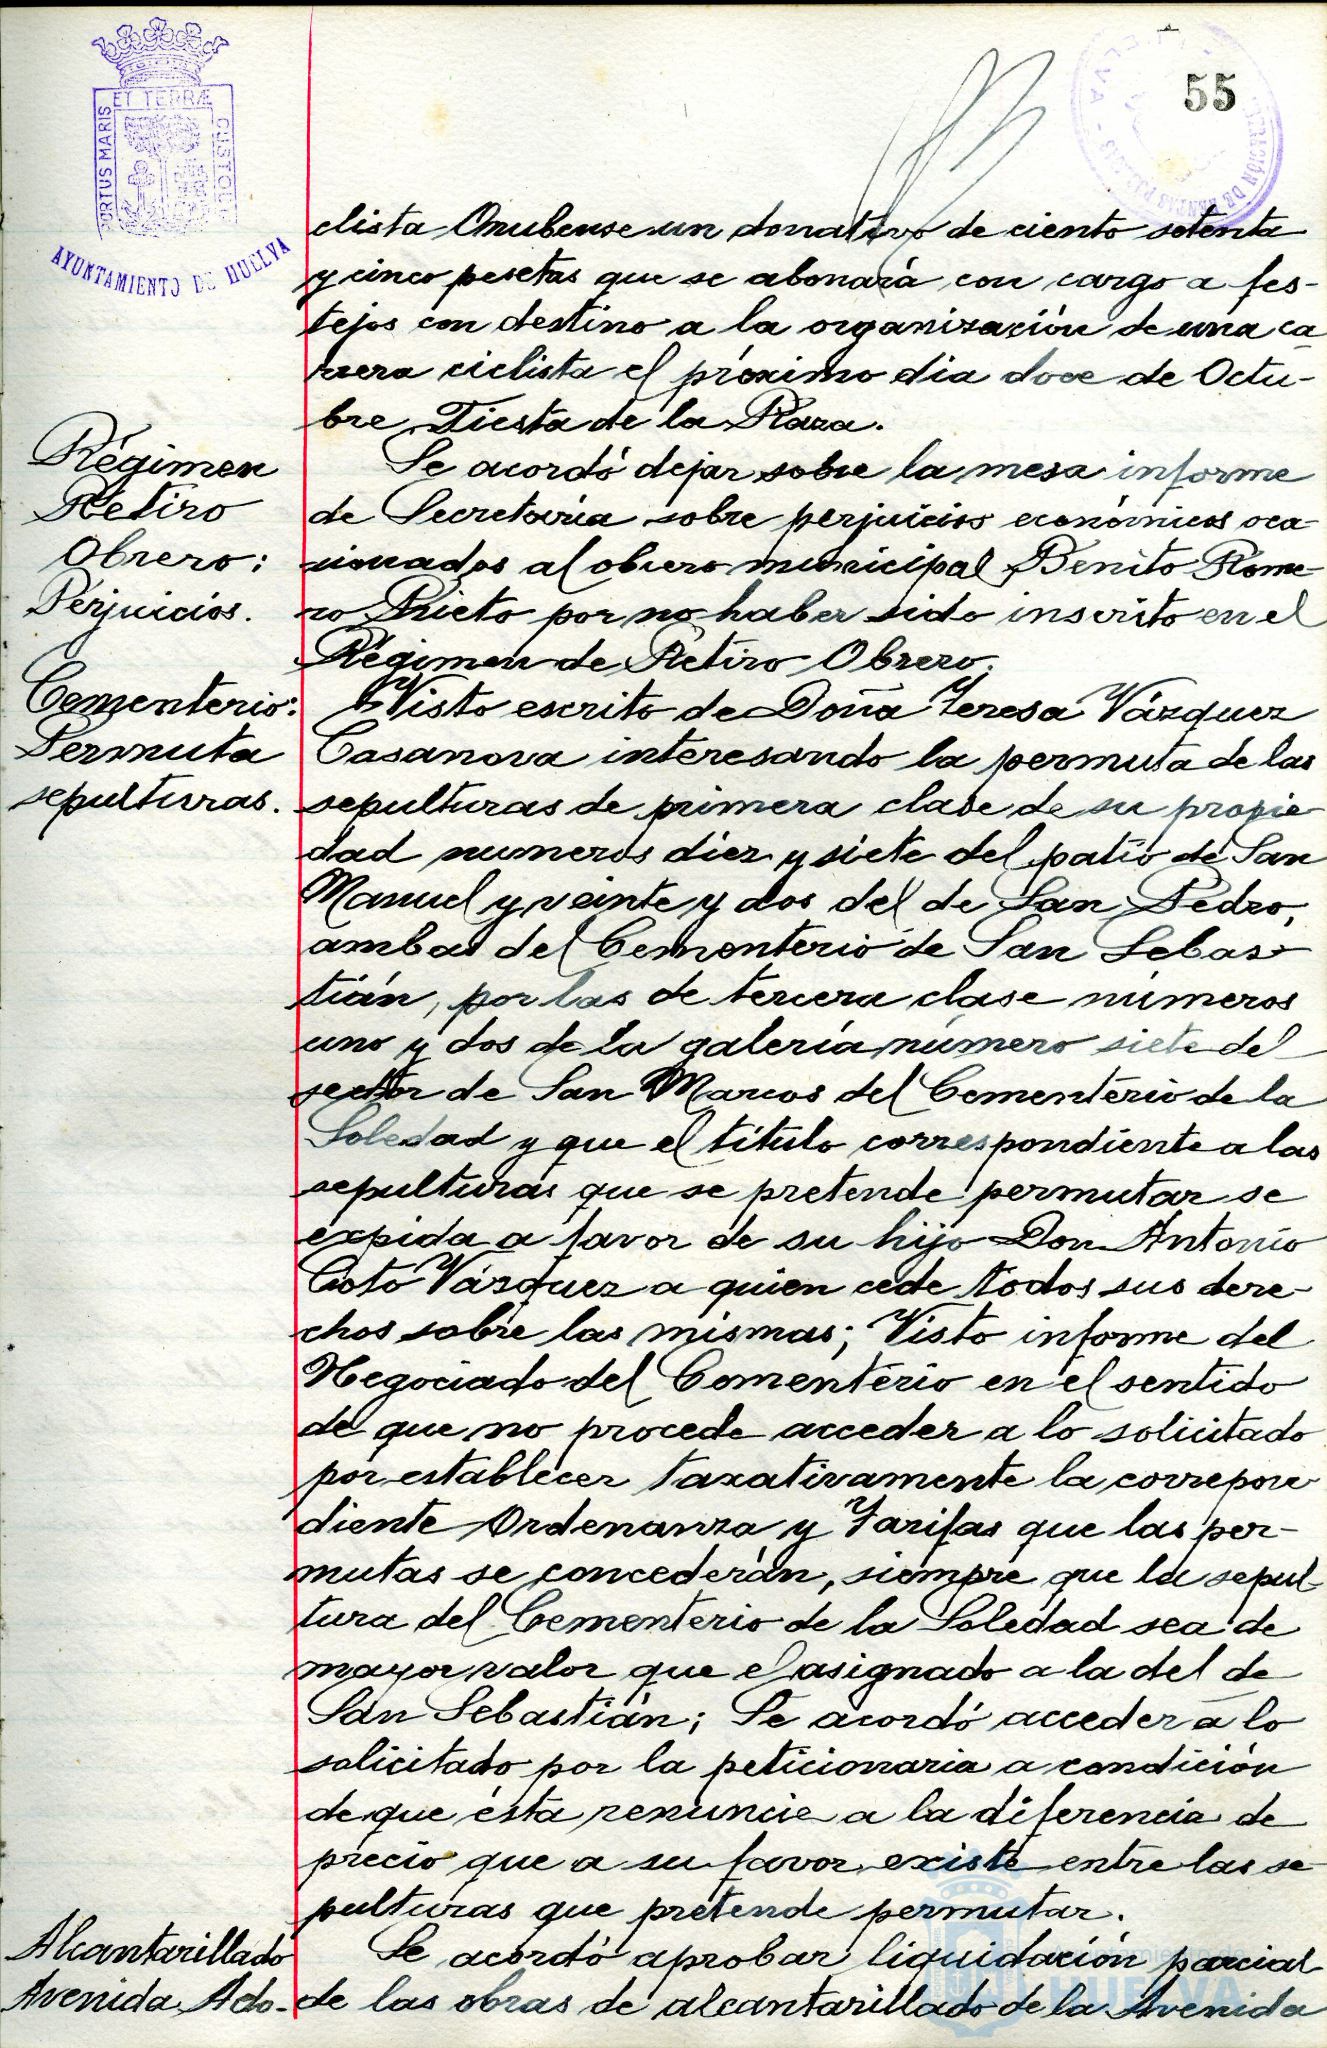 PORTUS MARIS ET TERRÆ CUSTODI
AYUNTAMIENTO DE HUELVA
55
clista Onubense un donativo de ciento setenta
y cinco pesetas que se abonará con cargo a fes-
tejos con destino a la organización de una ca
rrera ciclista el próximo dia doce de Octu-
bre, Fiesta de la Raza.
Régimen
Retiro
Obrero:
Perjuicios.
Se acordó dejar sobre la mesa informe
de Secretaría sobre perjuicios económicos oca-
sionados al obrero municipal Benito Rome-
ro Prieto por no haber sido inscrito en el
Régimen de Retiro Obrero.
Cementerio:
Permuta
sepulturas.
Visto escrito de Doña Teresa Vázquez
Casanova interesando la permuta de las
sepulturas de primera clase de su propie-
dad numeros diez y siete del patio de San
Manuel y veinte y dos del de San Pedro,
ambas del Cementerio de San Sebas-
tián, por las de tercera clase números
uno y dos de la galería número siete del
sector de San Marcos del Cementerio de la
Soledad y que el título correspondiente a las
sepulturas que se pretende permutar se
expida a favor de su hijo Don Antonio
Coto Vázquez a quien cede todos sus dere-
chos sobre las mismas; Visto informe del
Negociado del Cementerio en el sentido
de que no procede acceder a lo solicitado
por establecer taxativamente la correpon-
diente Ordenanza y Tarifas que las per-
mutas se concederán, siempre que la sepul-
tura del Cementerio de la Soledad sea de
mayor valor que el asignado a la del de
San Sebastián; Se acordó acceder a lo
solicitado por la peticionaria a condición
de que ésta renuncie a la diferencia de
precio que a su favor existe entre las se-
pulturas que pretende permutar.
Alcantarillado
Avenida Ado-
Se acordó aprobar liquidación parcial
de las obras de alcantarillado de la Avenida
HUELVA